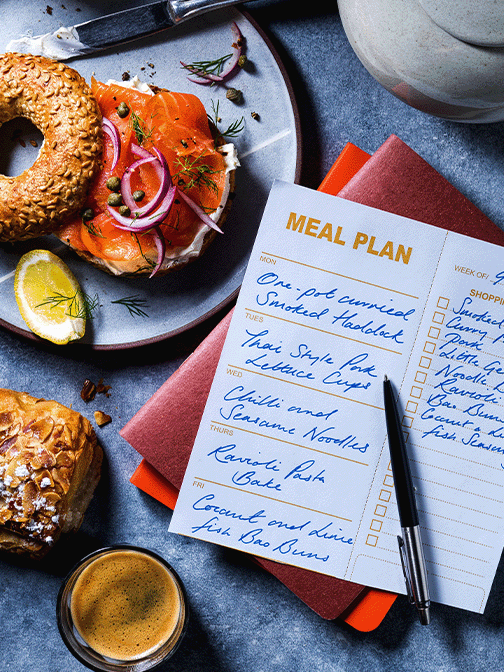 MEAL PLAN
MON
One-pot curried
Smoked Haddock
TUES
Thai Style Pork
Lettuce Cups
WED
Chilli and
Seasame Noodles
THURS
Ravioli Pasta
Bake
FRI
Coconut and Lime
fish Bao Buns
WEEK OF:
SHOPPING
Smoked
Curry
Pork
Little Ge
Noodle
Ravioli
Bao Buns
Coconut
fish Seasan